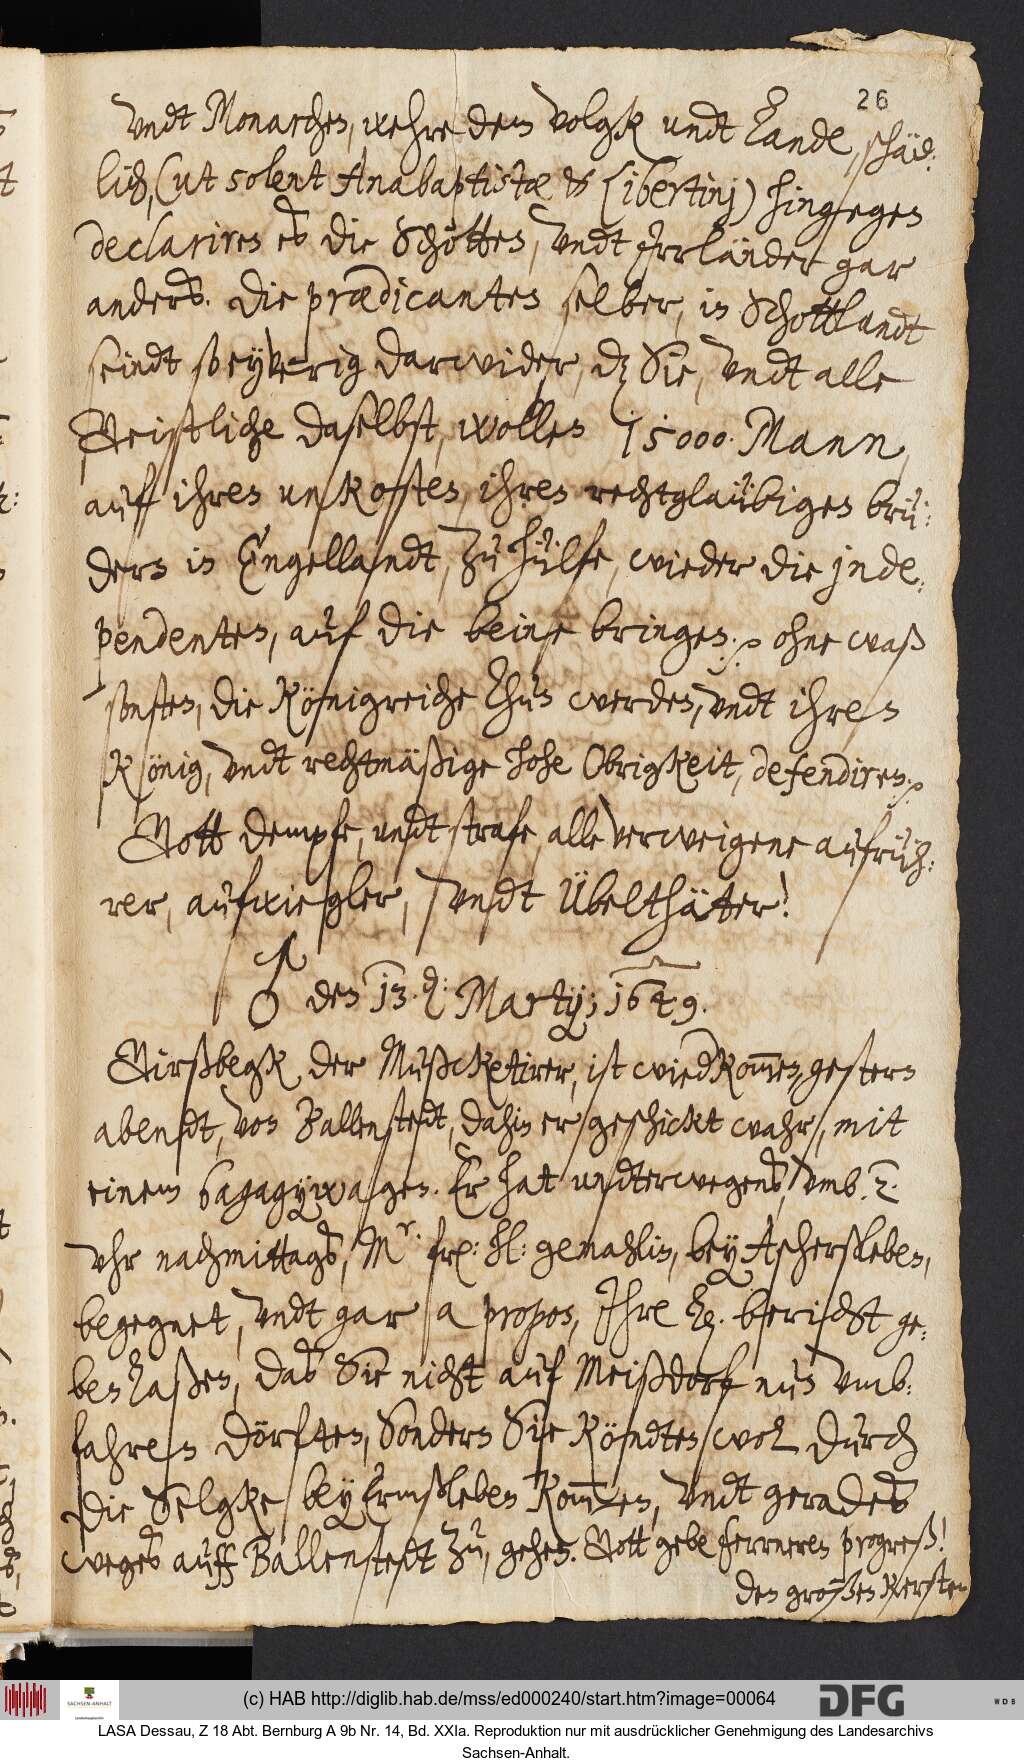 26
undt Monarchen, wehre dem volgk undt Lande, schäd:
lich, (ut solent Anabaptistæ & Libertinj) hingegen
declariren es die Schotten, undt Jrrländer gar
anders. Die prædicanten selber, in Schottlandt
seindt so eyverig darwider, dz Sie, undt alle
Geistliche daselbst, wollen 15000. Mann,
auf ihren unkosten, ihren rechtglaübigen brü:
dern in Engellandt, zu hülfe, wieder die jnde:
pendenten, auf die beine bringen. ohne waß
sonsten, die Königreiche thun werden, undt ihren
König, undt rechtmäßige hohe Obrigkeit, defendiren.
Gott dempfe, undt strafe, alle verweigene aufrüh:
rer, aufwiegler, undt Übelthäter!
♂ den 13. d: Martij; 1649.
Girßbegk der Mußcketirer, ist wiedkommen, gestern
abendt, von Ballenstedt, dahin er geschickt wahr, mit
einem bagagywagen. Er hat undterwegens, umb 2.
uhr nachmittags, Mr. frl: hl: gemahlin, bey Ascherßleben,
begegnet, undt gar a propos, Jhre Le. bericht ge:
ben laßen, das Sie nicht auf Meißdorf nun umb:
fahren dörften, Sondern Sie köndten wol durch
die Selgke bey Ermßleben kommen, undt gerades
weges auff Ballenstedt zu, gehen. Gott gebe ferrneren progreß!
den großen Kersten
(c) HAB http://diglib.hab.de/mss/ed000240/start.htm?image=00064
SACHSEN-ANHALT
DFG
WDB
LASA Dessau, Z 18 Abt. Bernburg A 9b Nr. 14, Bd. XXIa. Reproduktion nur mit ausdrücklicher Genehmigung des Landesarchivs
Sachsen-Anhalt.